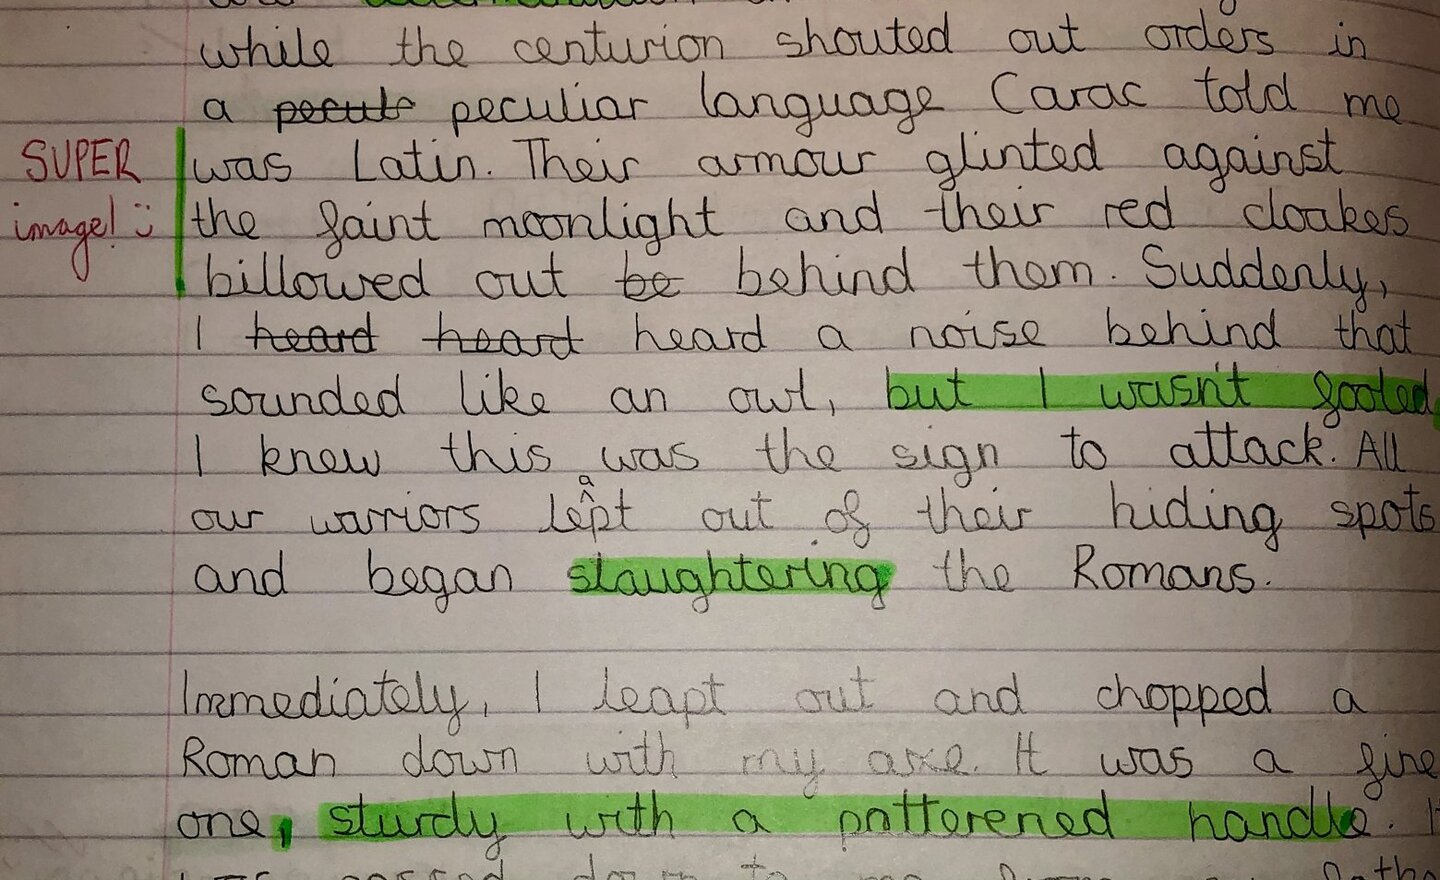 while the centurion shouted out orders in
a peculiar language Carac told me
SUPER image! :)
was Latin. Their armour glinted against
the faint moonlight and their red cloakes
billowed out be behind them. Suddenly,
I heard heard heard a noise behind that
sounded like an owl, but I wasn't fooled,
I knew this was the sign to attack. All
our warriors leapt out of their hiding spots
and began slaughtering the Romans.
Immediately, I leapt out and chopped a
Roman down with my axe. It was a fine
one, sturdy with a patterened handle.
down to me